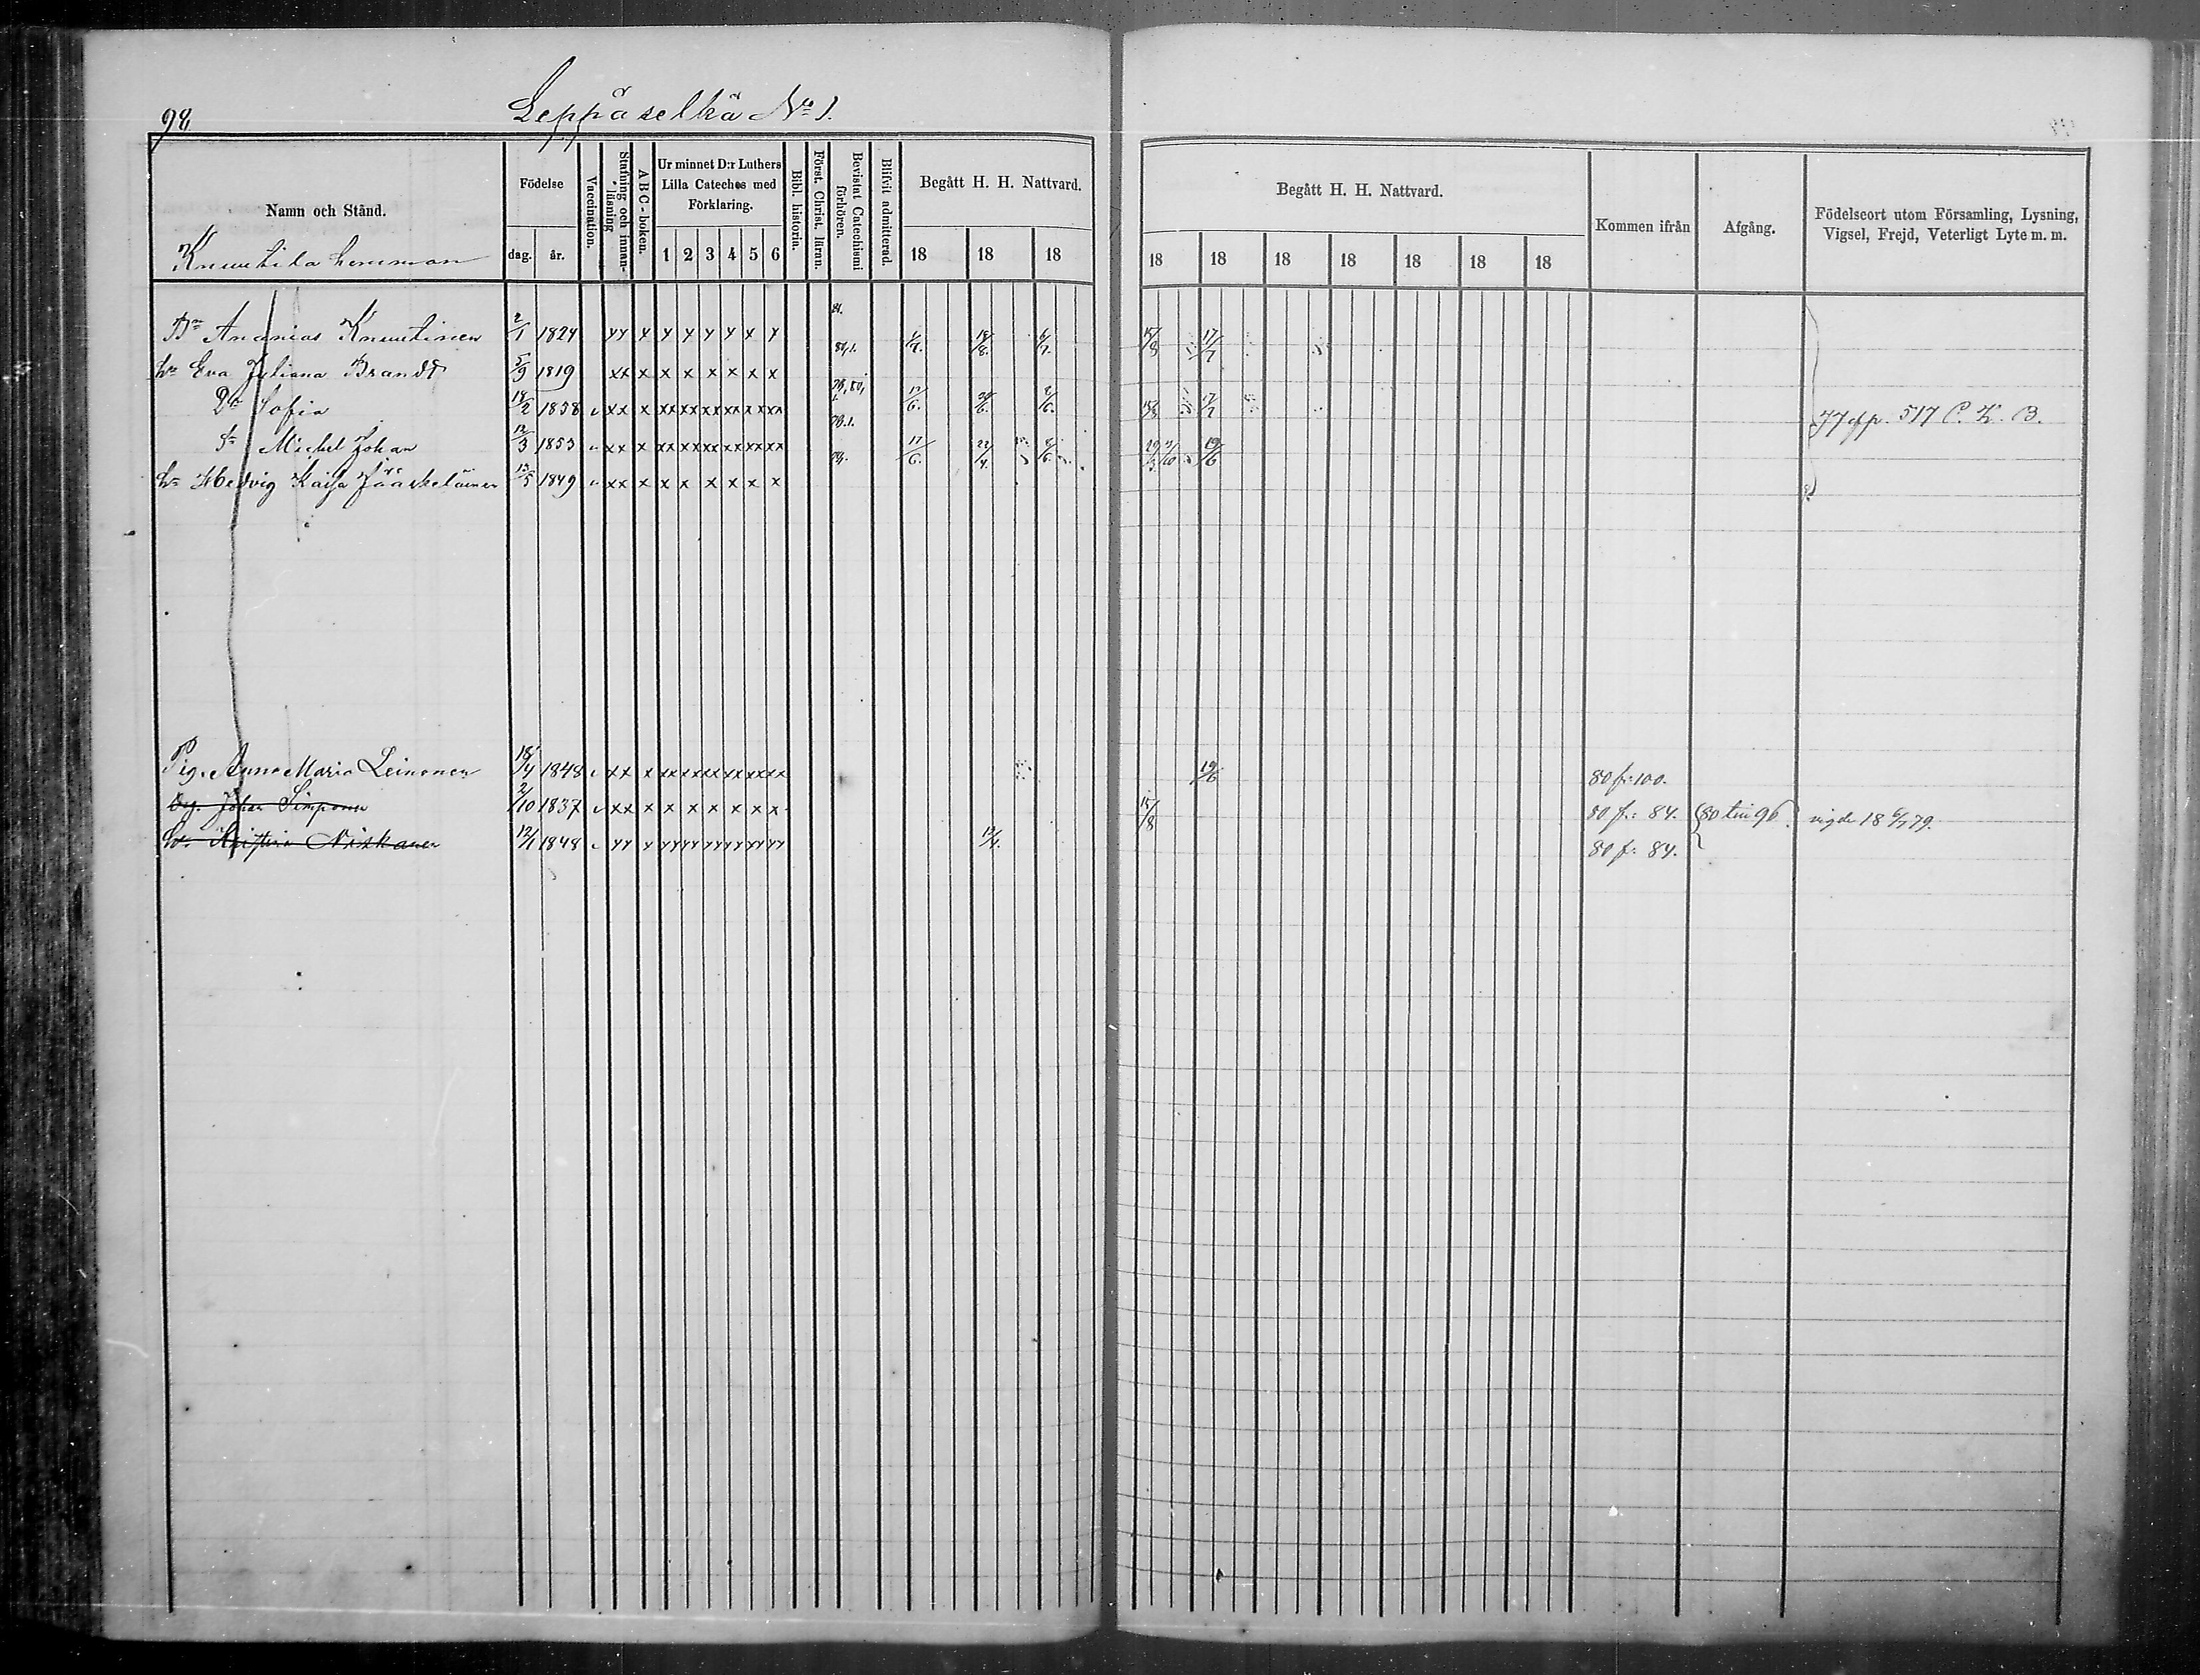 98
Leppäselkä No 1.
Namn och Stånd. Födelse Vaccination. Stafning och innan-läsning A B C-boken. Ur minnet D:r Luthers Lilla Cateches med Förklaring. Bibl. historia. Först. Christ. läran. Bevistat Catechismi förhören. Blifvit admitterad. Begått H. H. Nattvard. Begått H. H. Nattvard. Kommen ifrån Afgång. Födelseort utom Församling, Lysning, Vigsel, Frejd, Veterligt Lyte m. m.
Knuutila hemman dag. år. 1 2 3 4 5 6 18 18 18 18 18 18 18 18 18 18
Bn Ananias Knuutinen 2/1 1824 yy x y y y y x y 15/8 17/7
hu Eva Juliana Brandt 5/9 1819 xx x x x x x x x
Dr Sofia 18/2 1858 v xx x xx xx xx xx xx xx 17/6. 15/8 17/7 77 pp. 517 C. K. B.
Sn Michel Johan 13/3 1853 v xx x xx xx xx xx xx xx 17/6. 22/4. 19/6
hu Hedvig Kaisa Jääskeläinen 13/5 1849 v xx x x x x x x x
Pig. Anna Maria Leinonen 18/4 1848 v xx x xx xx xx xx xx xx 19/6 80 fr: 100.
Johan Simponen 2/10 1837 v xx x x x x x x x 15/8 80 fr: 84. 80 till 96 vigde 18 6/7 79.
hu. Kristina Niskanen 12/1 1848 v yy y yy yy yy yy yy yy 80 fr: 84.